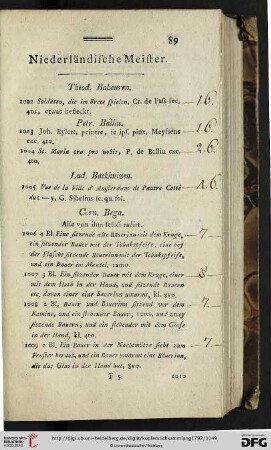 89
Niederländische Meister.
Theod. Babeuren.
1002 Soldaten, die im Brete spielen, Cr. de Pass sec.
4to, etwas befleckt.
16.
Petr. Balliu.
1003 Joh. Bylert, peintre, se ips. pinx. Meyssens
exc. 4to.
16.
1004 St. Maria ora pro nobis, P. de Balliu exc.
4to,
26.
Lud. Backhuizen.
1005 Vue de la Ville d'Amsterdam de l'autre Coté
G. Sibelius sc. qu fol.
16.
Corn. Bega.
Alle von ihm selbst radirt.
1006 4 Bl. Eine sitzende alte Bäuerinn mit dem Kruge,
ein sitzender Bauer mit der Tobakspfeife, eine bey
der Flasche sitzende Bäuerinn mit der Tobakspfeife,
und ein Bauer im Mantel, 12mo.
7.
1007 3 Bl. Ein sitzender Bauer mit dem Kruge, einer
mit dem Korb in der Hand, und sitzend Bauern
davon einer eine Bäuerinn umarmt, kl. 8vo.
8
1008 2 Bl. Bauer und Bäuerinn sitzend vor dem
Kamine, und ein stehender Bauer, 12mo. und zwey
sitzende Bauern, und ein stehender mit dem Glase
in der Hand, kl. 4to.
7.
1009 2 Bl. Ein Bauer in der Nachtmütze sieht zum
Fenster heraus, und ein Bauer umarmt eine Bäuerinn,
die das Glas in der Hand hat, 8vo.
7.
F 5
1010
http://digi.ub.uni-heidelberg.de/diglit/kupferstichsammlung1792/0149
UNIVERSITÄTS-
BIBLIOTHEK
HEIDELBERG
Gefördert durch
DFG